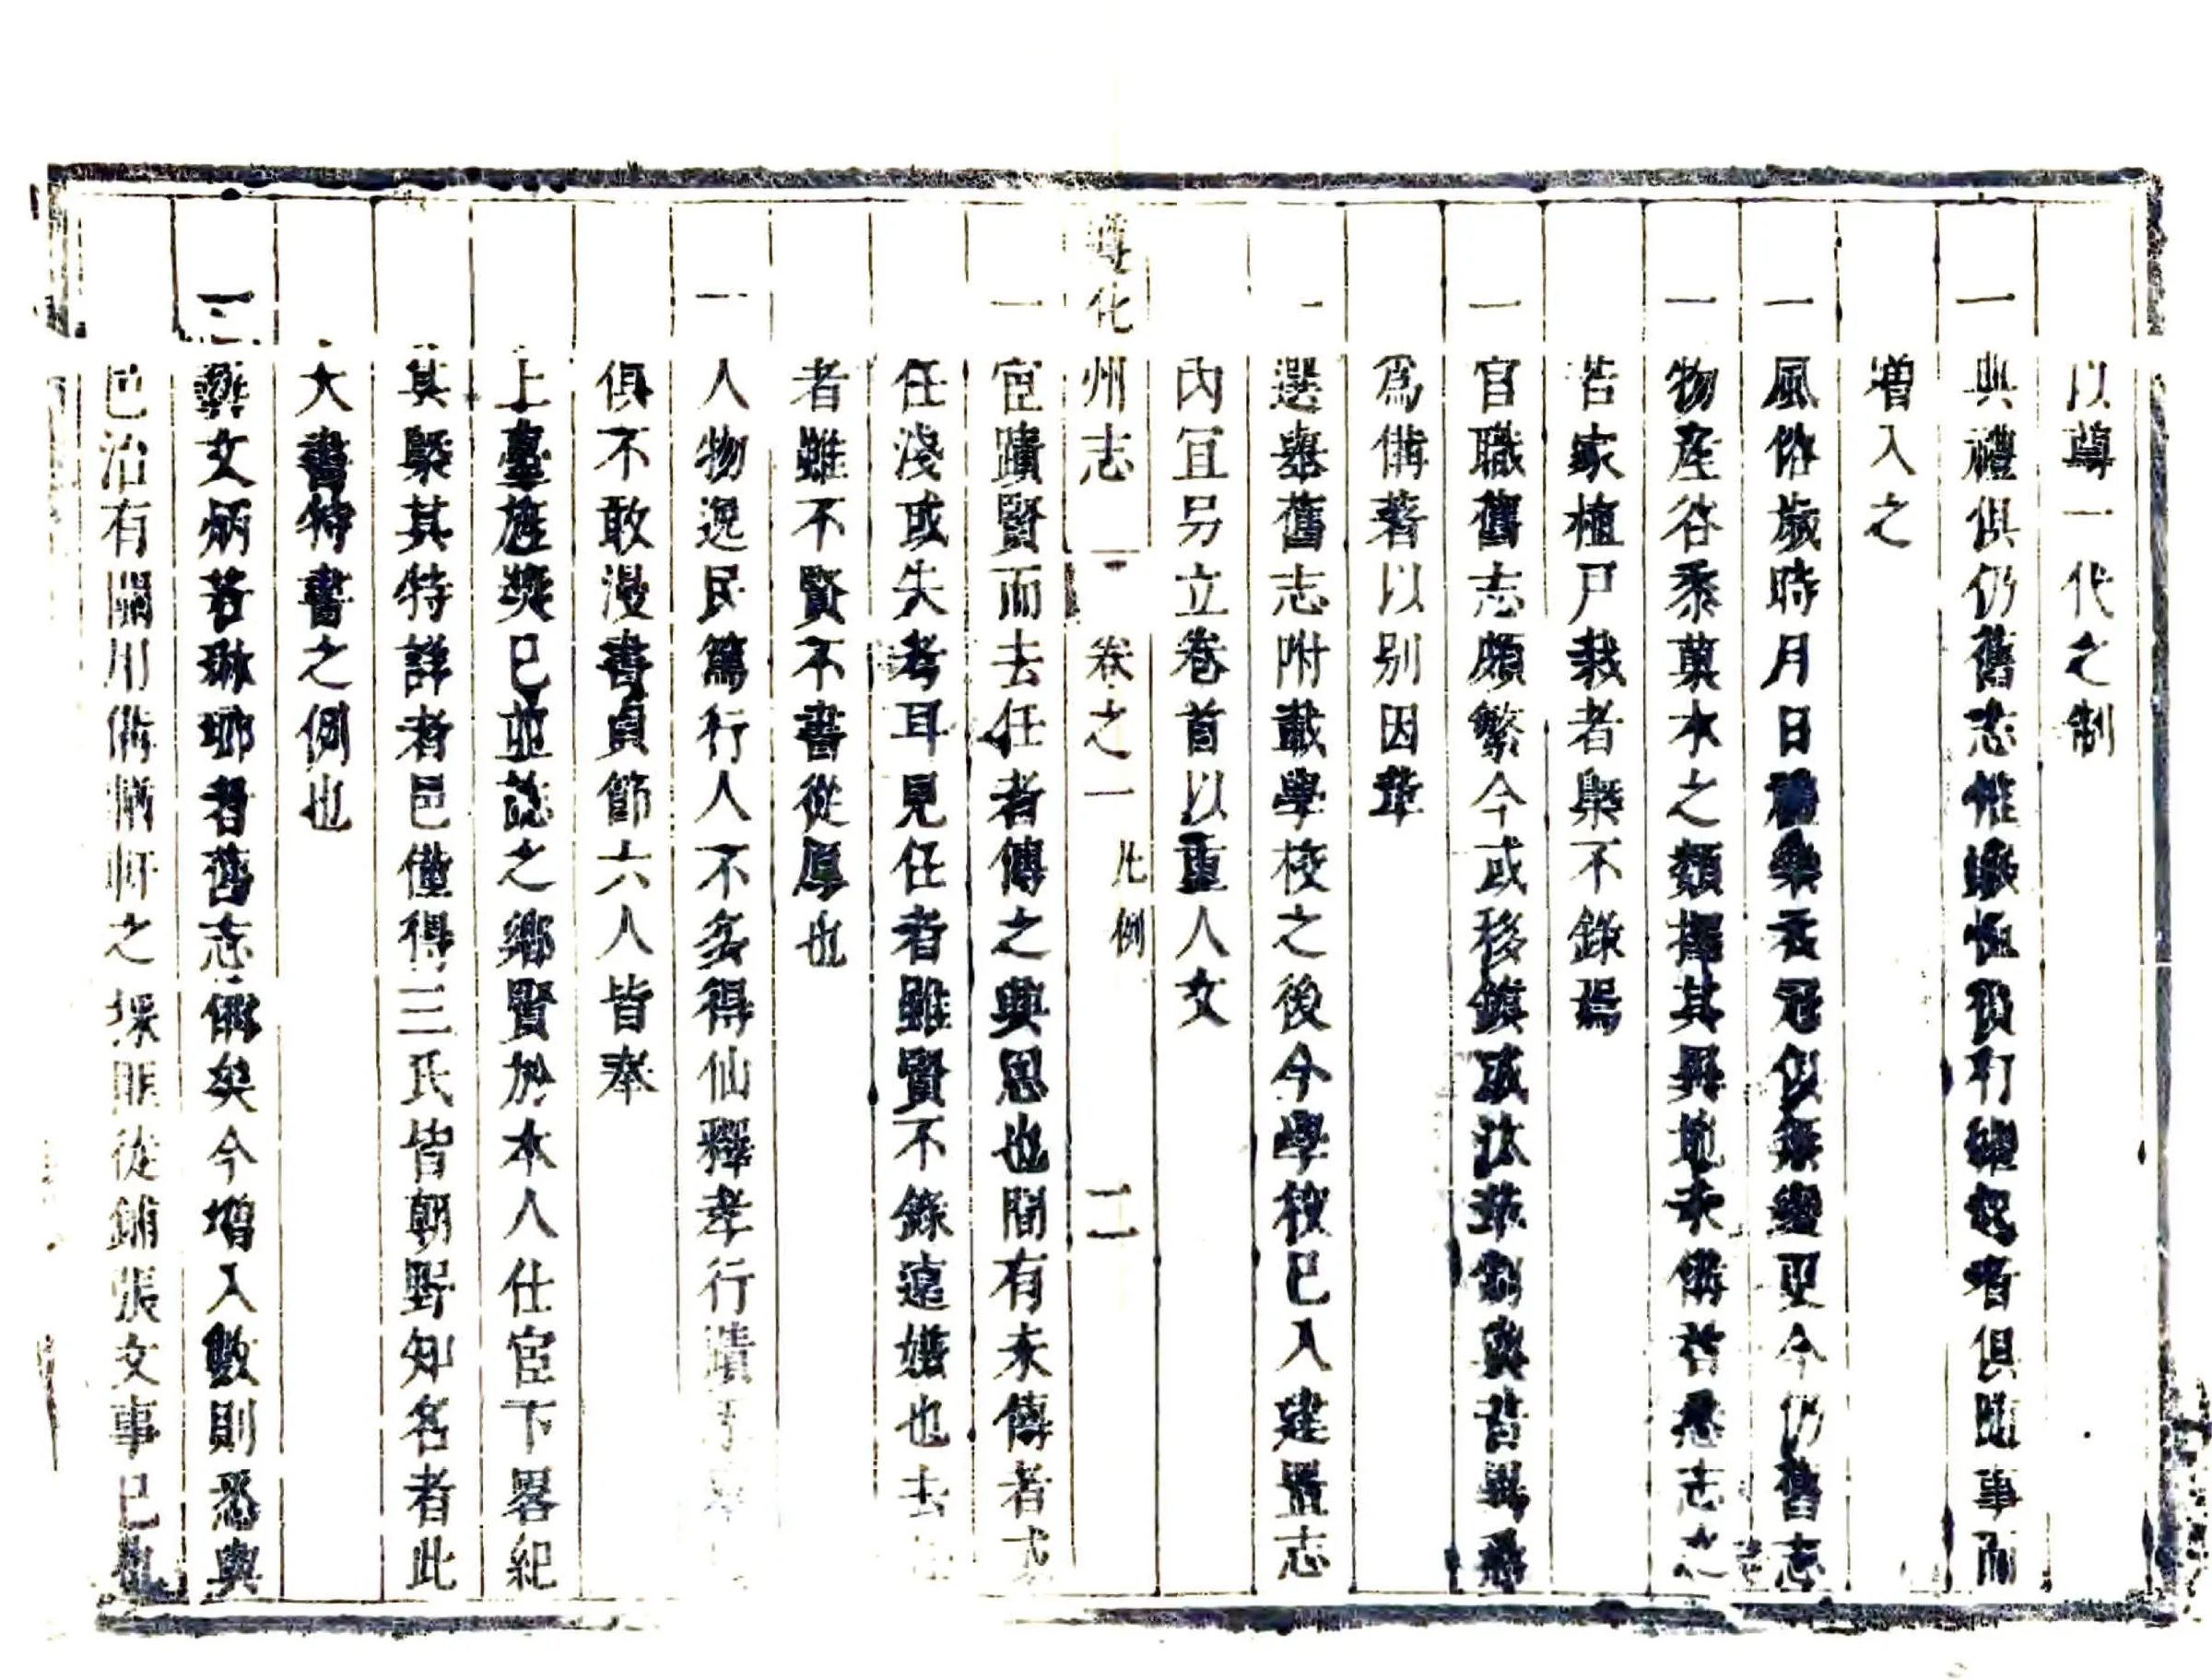 以尊一代之制
一典禮俱仍舊志惟蠲恤賓有繼起者俱隨事而
增入之
一風俗歲時月日禮樂衣冠似無變更今仍舊志
一物産谷黍菓木之類擇其異地未備者悉志之
若家植戶栽者槩不錄焉
一官職舊志頗繁今或移鎮或汰革制與昔異悉
爲俻著以别因革
一選舉舊志附載學校之後今學校已入建置志
内宜另立卷首以重人文
遵化州志 卷之一 凡例 二
一宦蹟賢而去任者傳之興思也間有未傳者或
任淺或失考耳見任者雖賢不錄遠嫌也去
者雖不賢不書從厚也
一人物逸民篤行人不多得仙釋孝行蹟
俱不敢漫書貞節六人皆奉
上臺旌獎已並誌之鄉賢於本人仕宦下畧紀
其槩其特詳者邑僅得三氏皆朝野知名者此
大書特書之例也
一藝文炳若琳瑯者舊志備矣今增入數則悉與
邑治有關用俻輶軒之採匪從鋪張文事已也